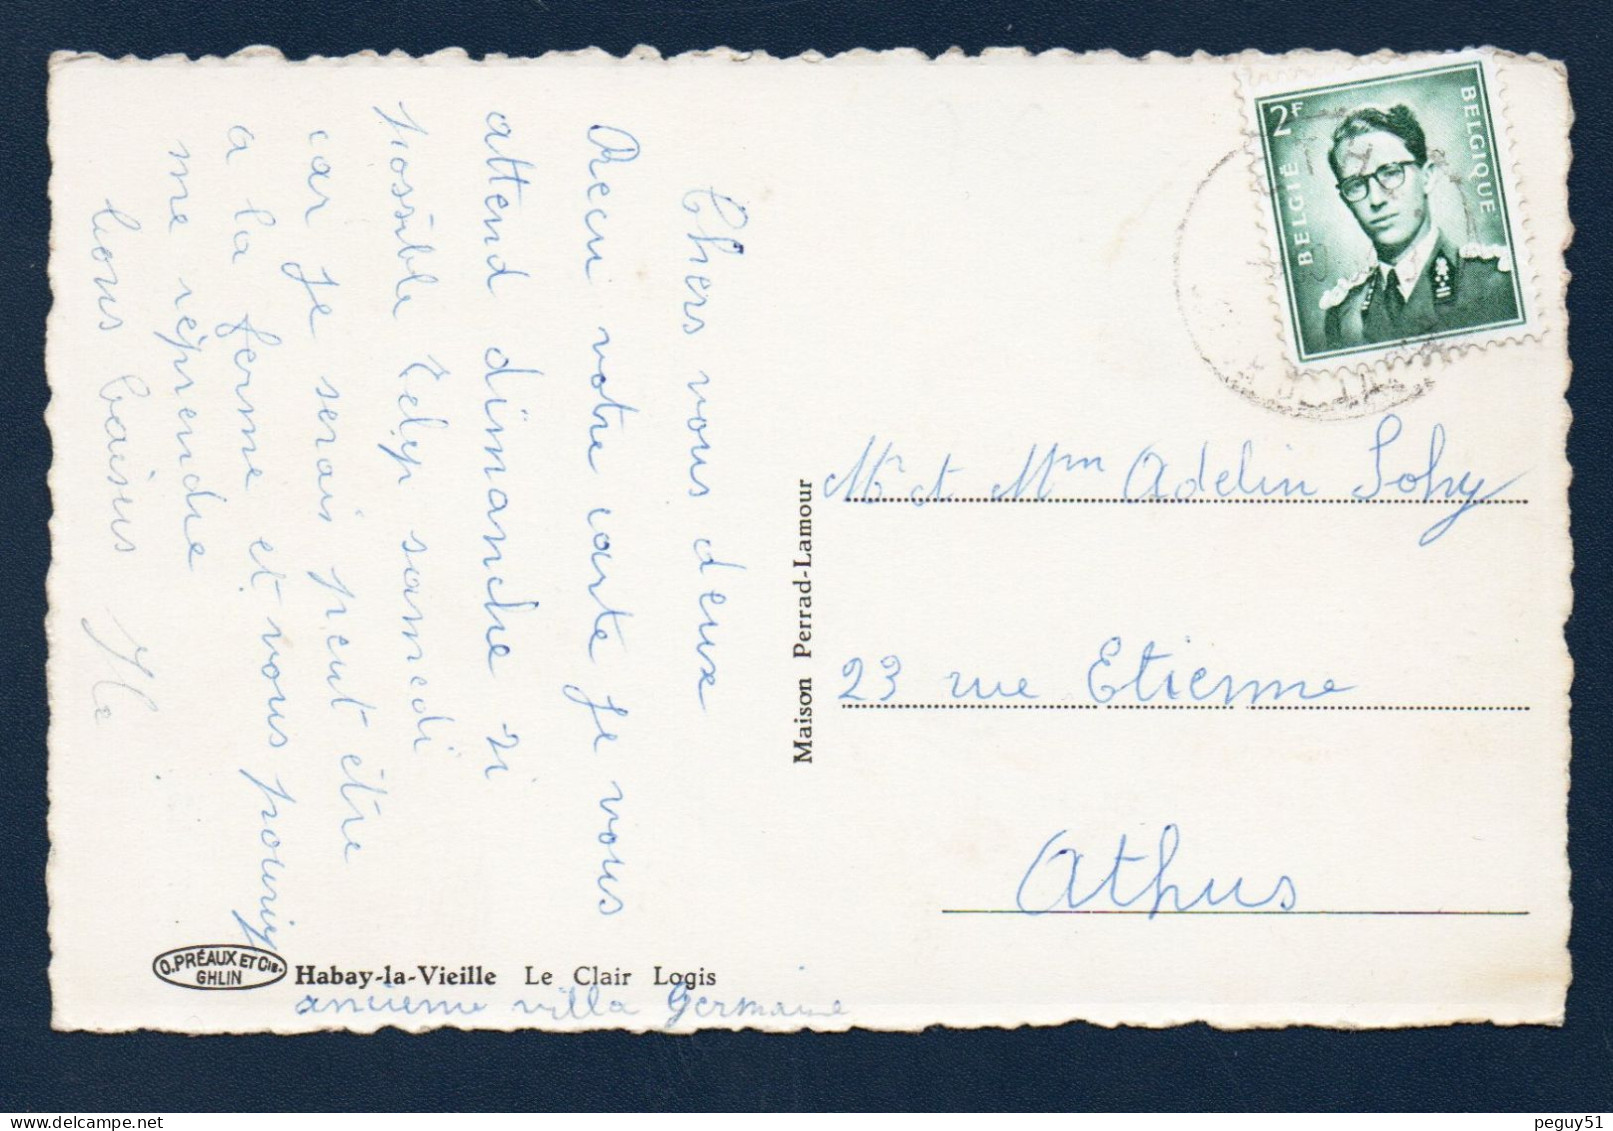 Chers vous deux
Recu votre carte je vous
attend dimanche si
possible telep samedi
car je serais peut être
a la ferme et vous pouriez
me réprendre
bons baisers
Mr et Mme Adelin Sohy
23 rue Etienne
Athus
Maison Perrad-Lamour
O. PRÉAUX ET Cie.
GHLIN
Habay-la-Vieille Le Clair Logis
ancienne villa Germaine
2F
BELGIË
BELGIQUE
peguy51